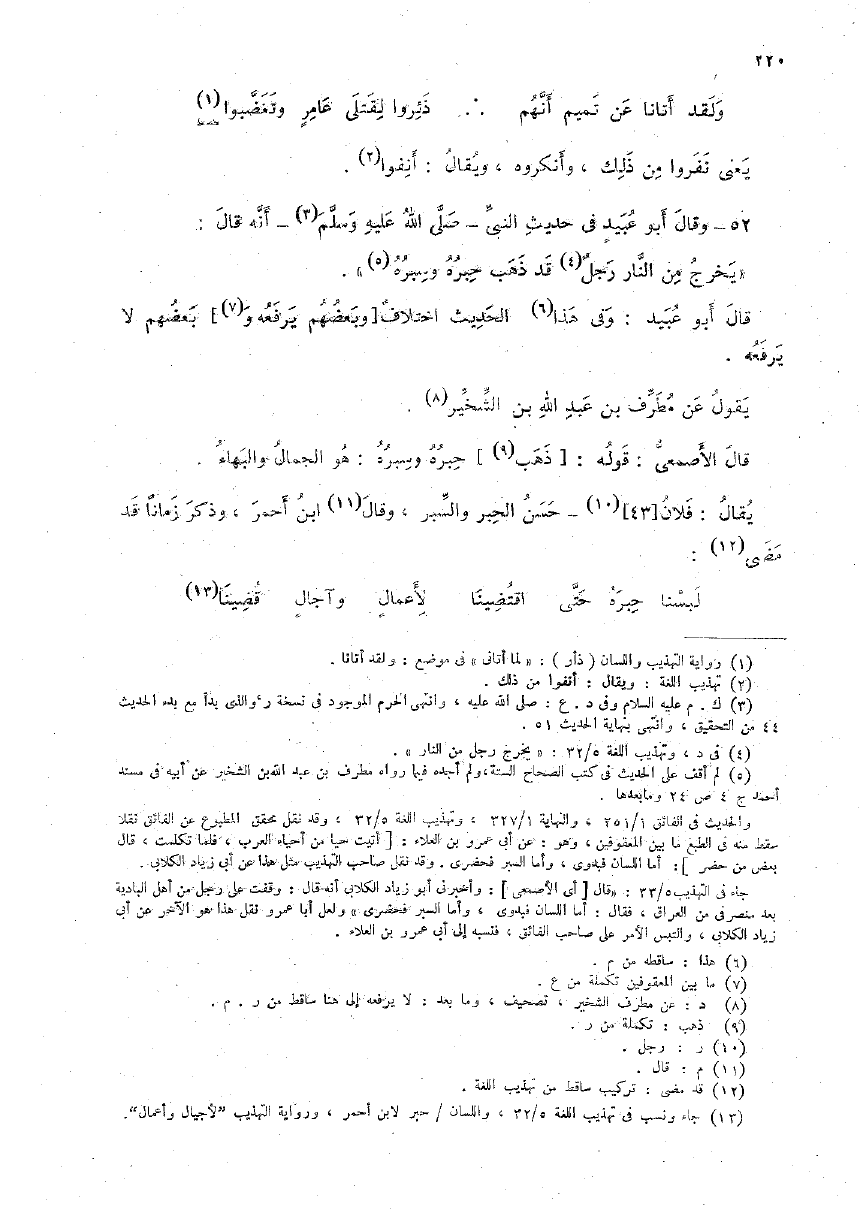 ٢٢٠
وَلَقد أَتانا عَن تَميم أَنَّهُم ∴ ذَئِروا لِقَتلَى عَامِرٍ وتَغَضَّبوا(١)
يَعنى نَفَروا مِن ذَلِك ، وأَنكروه ، ويُقالُ : أَنِفوا(٢) .
٥٢ – وقالَ أَبو عُبَيدٍ فى حديثِ النبىِّ – صَلَّى اللهُ عَليهِ وَسلَّم(٣) – أَنَّه قالَ :
«يَخرجُ مِنَ النَّارِ رَجلٌ(٤) قَد ذَهَب حِبرُهُ وسِبرُهُ(٥)» .
قالَ أَبو عُبَيد : وَفى هَذا(٦) الحَدِيث اختلافٌ [وبَعضُهُم يَرفَعُه وَ(٧)] بَعضُهم لا
يَرفَعُه .
يَقولُ عَن مُطَرِّف بن عَبدِ اللهِ بن الشِّخِّير(٨) .
قالَ الأَصمعىُّ : قَولُه : [ ذَهَب(٩) ] حِبرُهُ وسِبرُهُ : هُو الجمالُ والبَهاءُ .
يُقالُ : فَلانُ[٤٣](١٠) – حَسَنُ الحِبر والسِّبر ، وقالَ(١١) ابنُ أَحمرَ ، وذكرَ زَماناً قَد
مَضَى(١٢) :
لَبِسْنا حِبرَهْ حَتَّى اقتُضِينَا لِأَعمالٍ وآجالٍ قُضِينَا(١٣)
(١) رواية التهذيب واللسان ( ذأر ) : « لما أتانى » فى موضع : ولقد أتانا .
(٢) تهذيب اللغة : ويقال : أنفوا من ذلك .
(٣) ك . م عليه السلام وفى د . ع : صلى الله عليه ، وانتهى الخرم الموجود فى نسخة ر ، والذى بدأ مع بدء الحديث
٤٤ من التحقيق ، وانتهى بنهاية الحديث ٥١ .
(٤) فى د ، وتهذيب اللغة ٣٢/٥ : « يخرج رجل من النار » .
(٥) لم أقف على الحديث فى كتب الصحاح الستة، ولم أجده فيما رواه مطرف بن عبد الله بن الشخير عن أبيه فى مسند
أحمد ج ٤ ص ٢٤ ومابعدها .
والحديث فى الفائق ٢٥١/١ ، والنهاية ٣٢٧/١ ، وتهذيب اللغة ٣٢/٥ ، وقد نقل محقق المطبوع عن الفائق نقلا
سقط منه فى الطبع ما بين المعقوفين ، وهو : عن أبى عمرو بن العلاء : [ أتيت حيا من أحياء العرب ، فلما تكلمت ، قال
بعض من حضر ]: أما اللسان فبدوى ، وأما السبر فحضرى . وقد نقل صاحب التهذيب مثل هذا عن أبى زياد الكلابى .
جاء فى التهذيب ٣٣/٥ : «قال [ أى الأصمعى ] : وأخبرنى أبو زياد الكلابى أنه قال : وقفت على رجل من أهل البادية
بعد منصرفى من العراق ، فقال : أما اللسان فبدوى ، وأما السبر فحضرى » ولعل أبا عمرو نقل هذا هو الآخر عن أبى
زياد الكلابى ، والتبس الأمر على صاحب الفائق ، فنسبه إلى أبى عمرو بن العلاء .
(٦) هذا : ساقطه من م .
(٧) ما بين المعقوفين تكملة من ع .
(٨) د : عن مطرف الشخير ، تصحيف ، وما بعد : لا يرفعه إلى هنا ساقط من ر . م .
(٩) ذهب : تكملة من ر .
(١٠) ر : رجل .
(١١) م : قال .
(١٢) قد مضى : تركيب ساقط من تهذيب اللغة .
(١٣) جاء ونسب فى تهذيب اللغة ٣٢/٥ ، واللسان / حبر لابن أحمر ، ورواية التهذيب "لأجيال وأعمال".